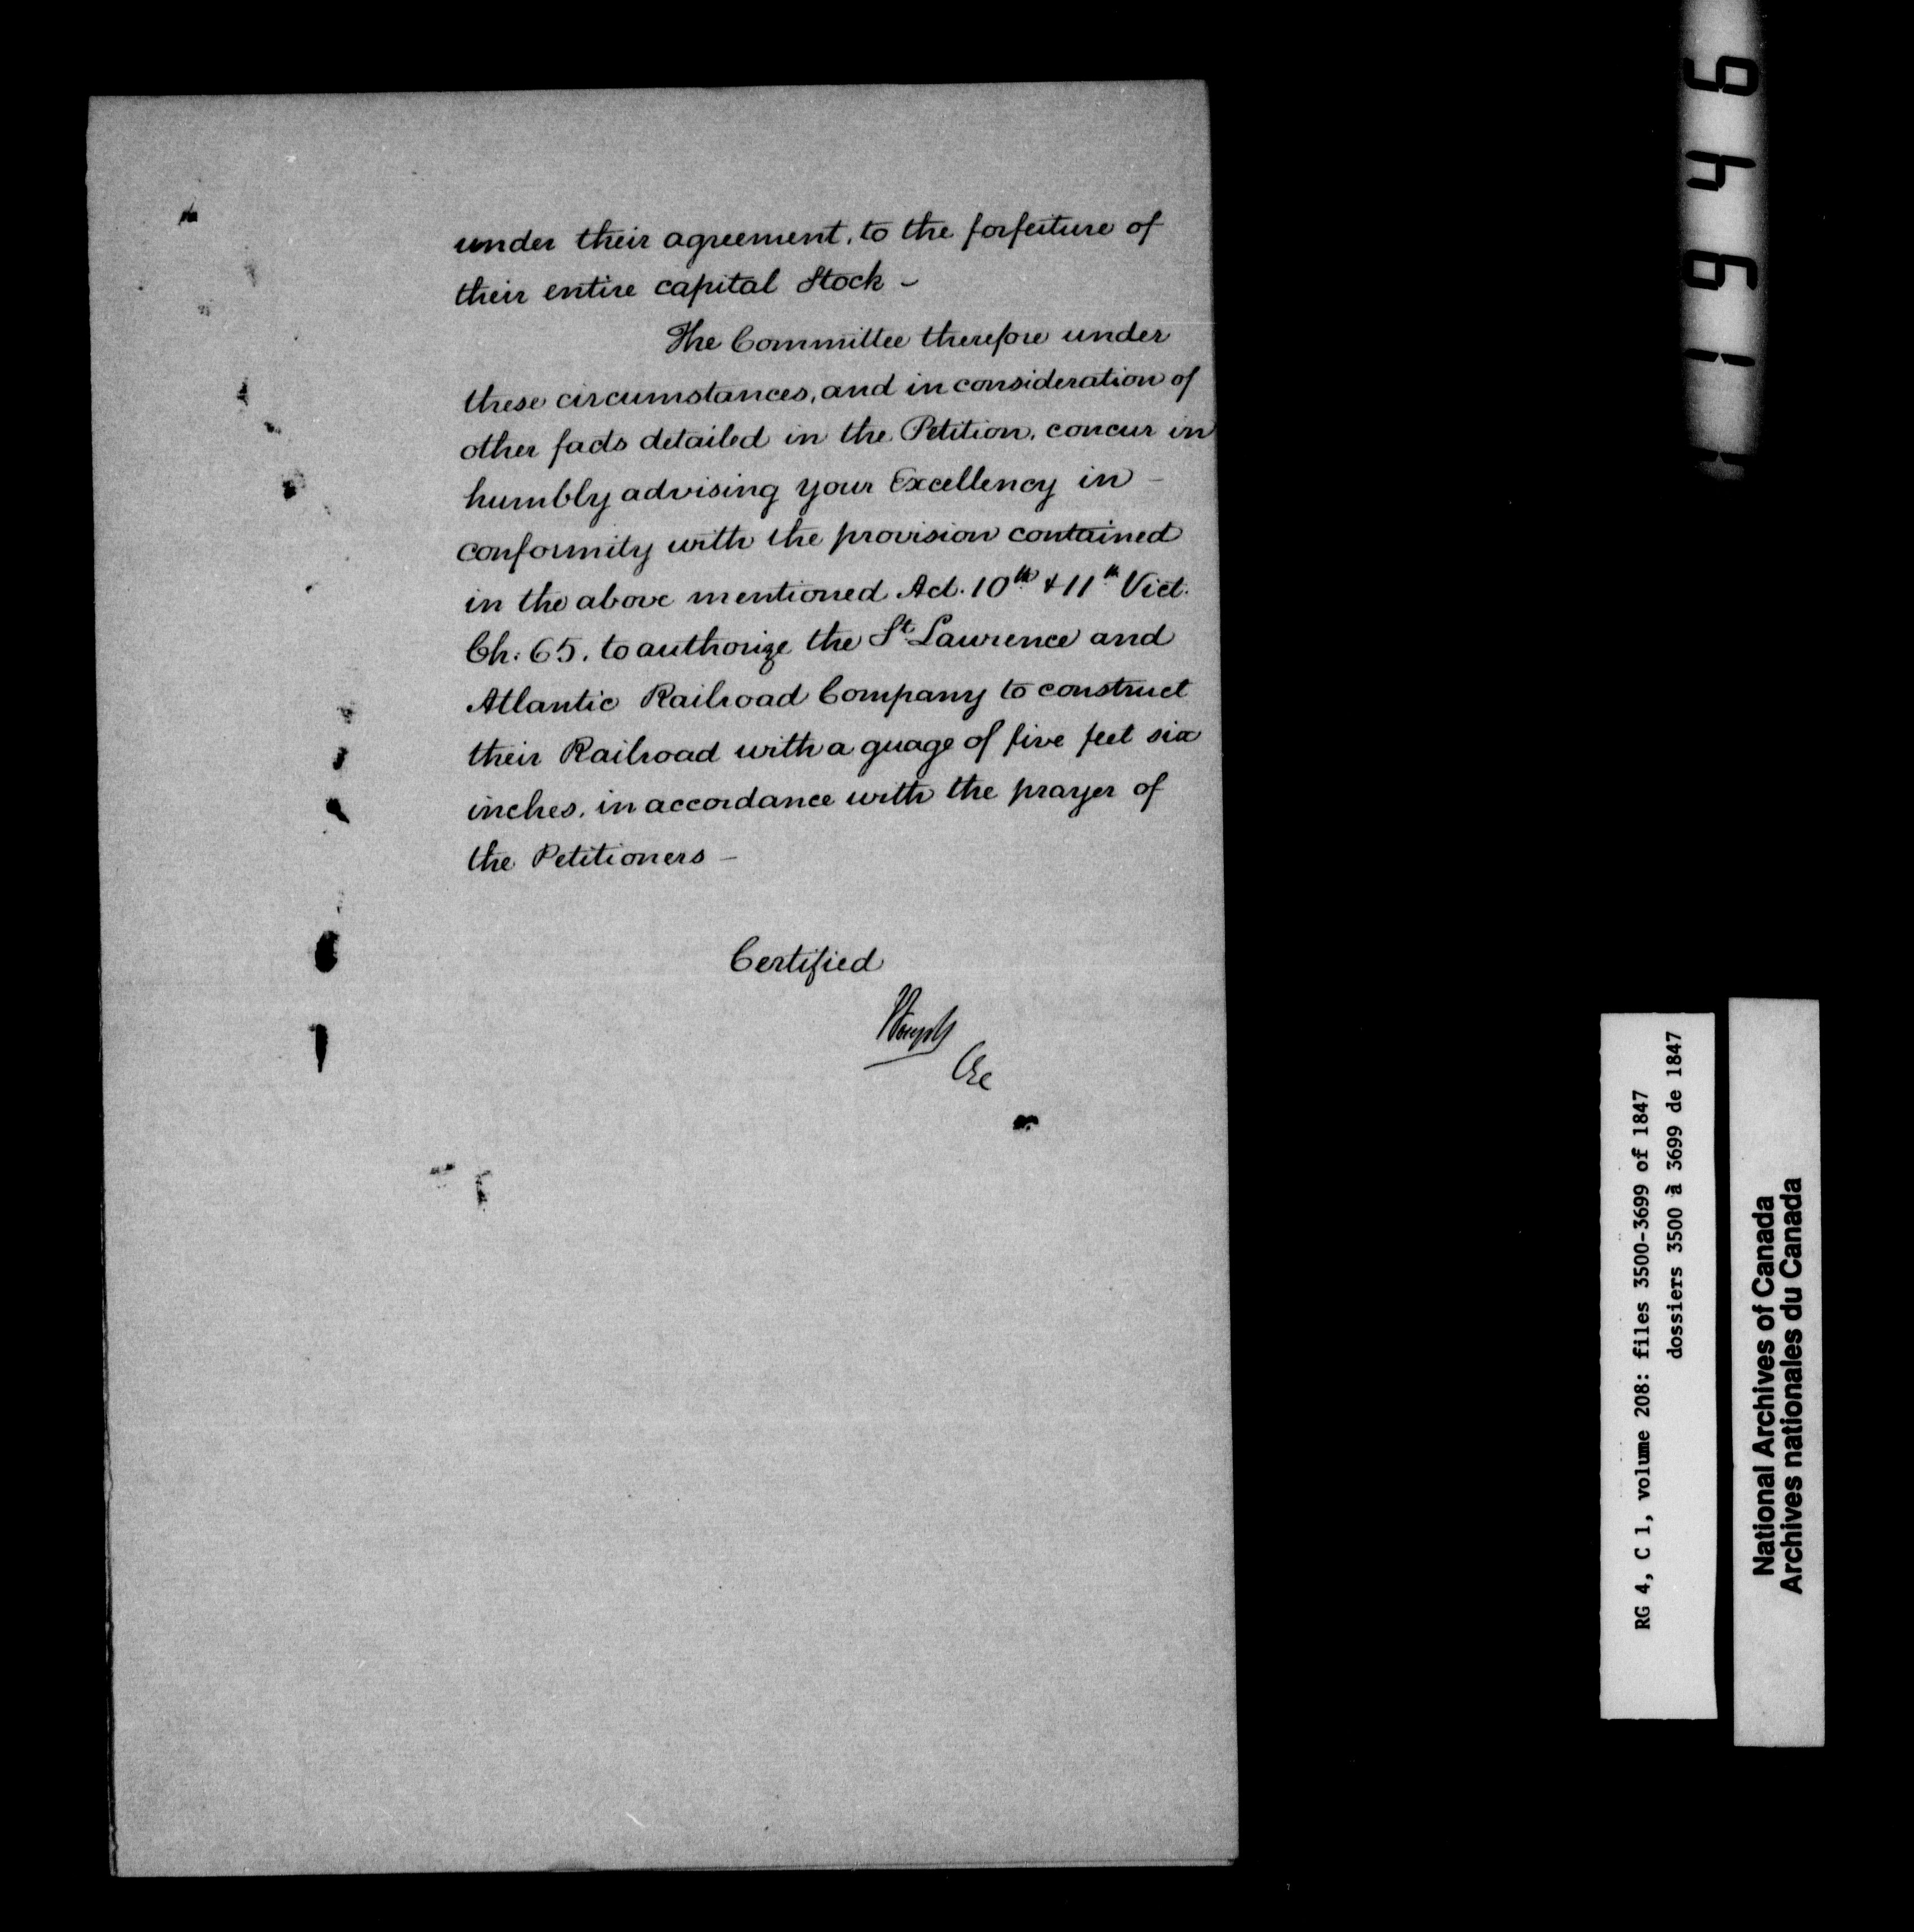 under their agreement, to the forfeiture of
their entire capital Stock -
The Committee therefore under
these circumstances, and in consideration of
other facts detailed in the Petition, concur in
humbly advising your Excellency in -
conformity with the provision contained
in the above mentioned Act. 10th & 11th Vict:
Ch: 65. to authorize the St. Lawrence and
Atlantic Railroad Company to construct
their Railroad with a guage of five feet six
inches, in accordance with the prayer of
the Petitioners -
Certified
RG 4, C 1, volume 208: files 3500-3699 of 1847
dossiers 3500 à 3699 de 1847
National Archives of Canada
Archives nationales du Canada